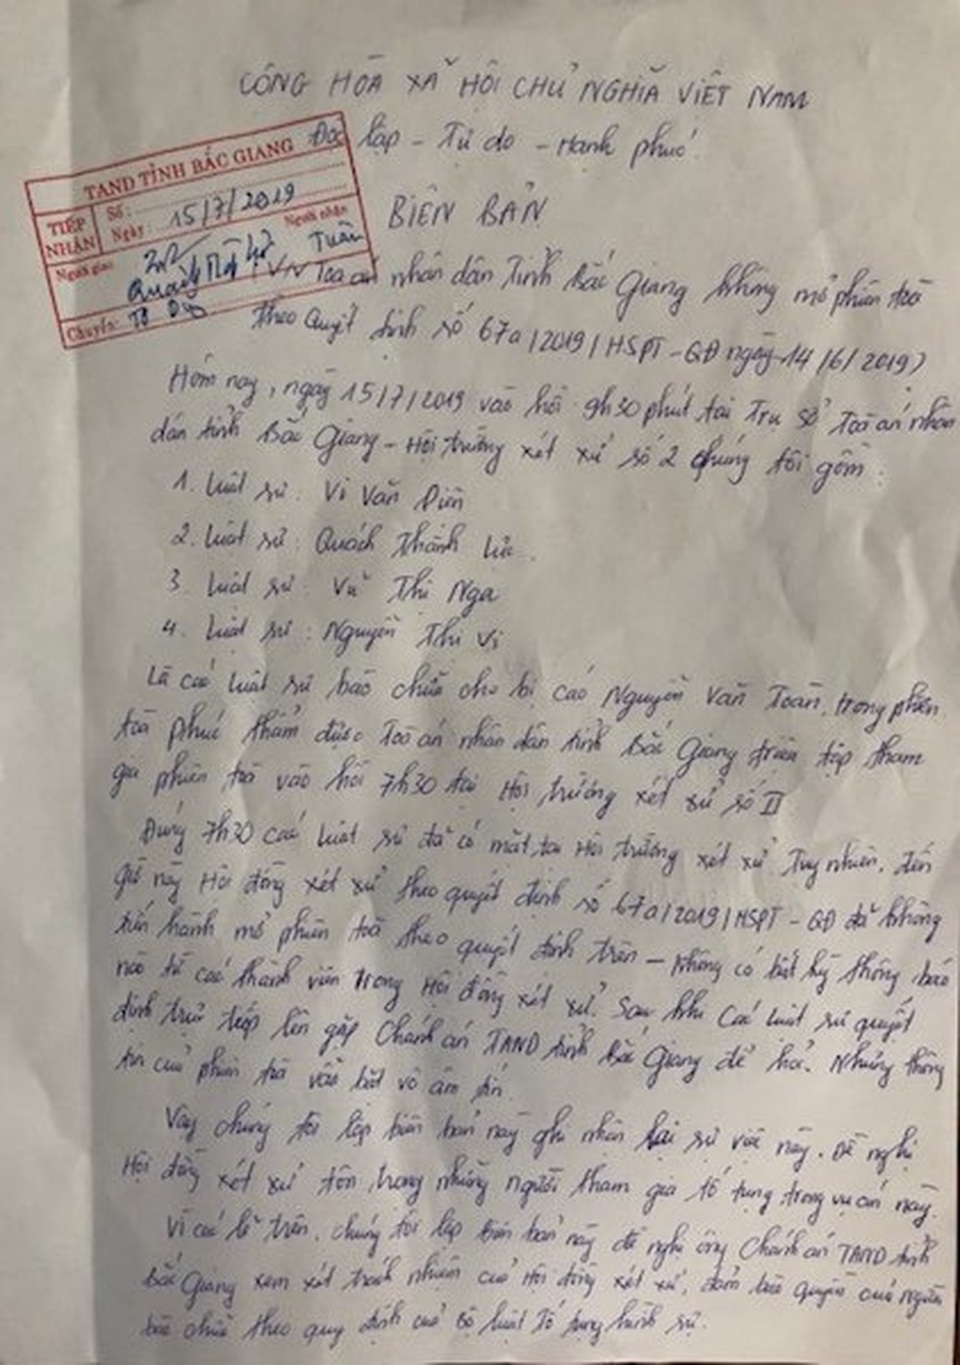 CÔNG HÒA XÃ HỘI CHỦ NGHĨA VIỆT NAM
Độc lập - Tự do - Hạnh phúc
TAND TỈNH BẮC GIANG
TIẾP NHẬN
Số:
Ngày: 15/7/2019
Người giao
Người nhận
Tuấn
Chuyển:
BIÊN BẢN
(V/v Toà án nhân dân Tỉnh Bắc Giang không mở phiên toà
theo Quyết định số 67a/2019/HSPT-QĐ ngày 14/6/2019)
Hôm nay, ngày 15/7/2019 vào hồi 9h30 phút tại Trụ sở Toà án nhân
dân tỉnh Bắc Giang - Hội trường xét xử số 2 chúng tôi gồm:
1. Luật sư: Vi Văn Diên
2. Luật sư: Quách Thành Lực.
3. Luật sư: Vũ Thị Nga
4. Luật sư: Nguyễn Thị Vi
Là các luật sư bào chữa cho bị cáo Nguyễn Văn Toàn, trong phiên
toà phúc thẩm được Toà án nhân dân tỉnh Bắc Giang triệu tập tham
gia phiên toà vào hồi 7h30 tại Hội trường xét xử số II
Đúng 7h30 các luật sư đã có mặt tại Hội trường xét xử. Tuy nhiên, đến
giờ này Hội đồng xét xử theo quyết định số 67a/2019/HSPT-QĐ đã không
tiến hành mở phiên toà theo quyết định trên - không có bất kỳ thông báo
nào từ các thành viên trong Hội đồng xét xử. Sau khi các luật sư quyết
định trực tiếp lên gặp Chánh án TAND tỉnh Bắc Giang để hỏi. Nhưng thông
tin của phiên toà vẫn bặt vô âm tín.
Vậy chúng tôi lập biên bản này ghi nhận lại sự việc này. Đề nghị
Hội đồng xét xử tôn trọng những người tham gia tố tụng trong vụ án này.
Vì các lẽ trên, chúng tôi lập biên bản này đề nghị ông Chánh án TAND tỉnh
Bắc Giang xem xét trách nhiệm của Hội đồng xét xử, đảm bảo quyền của người
bào chữa theo quy định của Bộ luật Tố tụng hình sự.